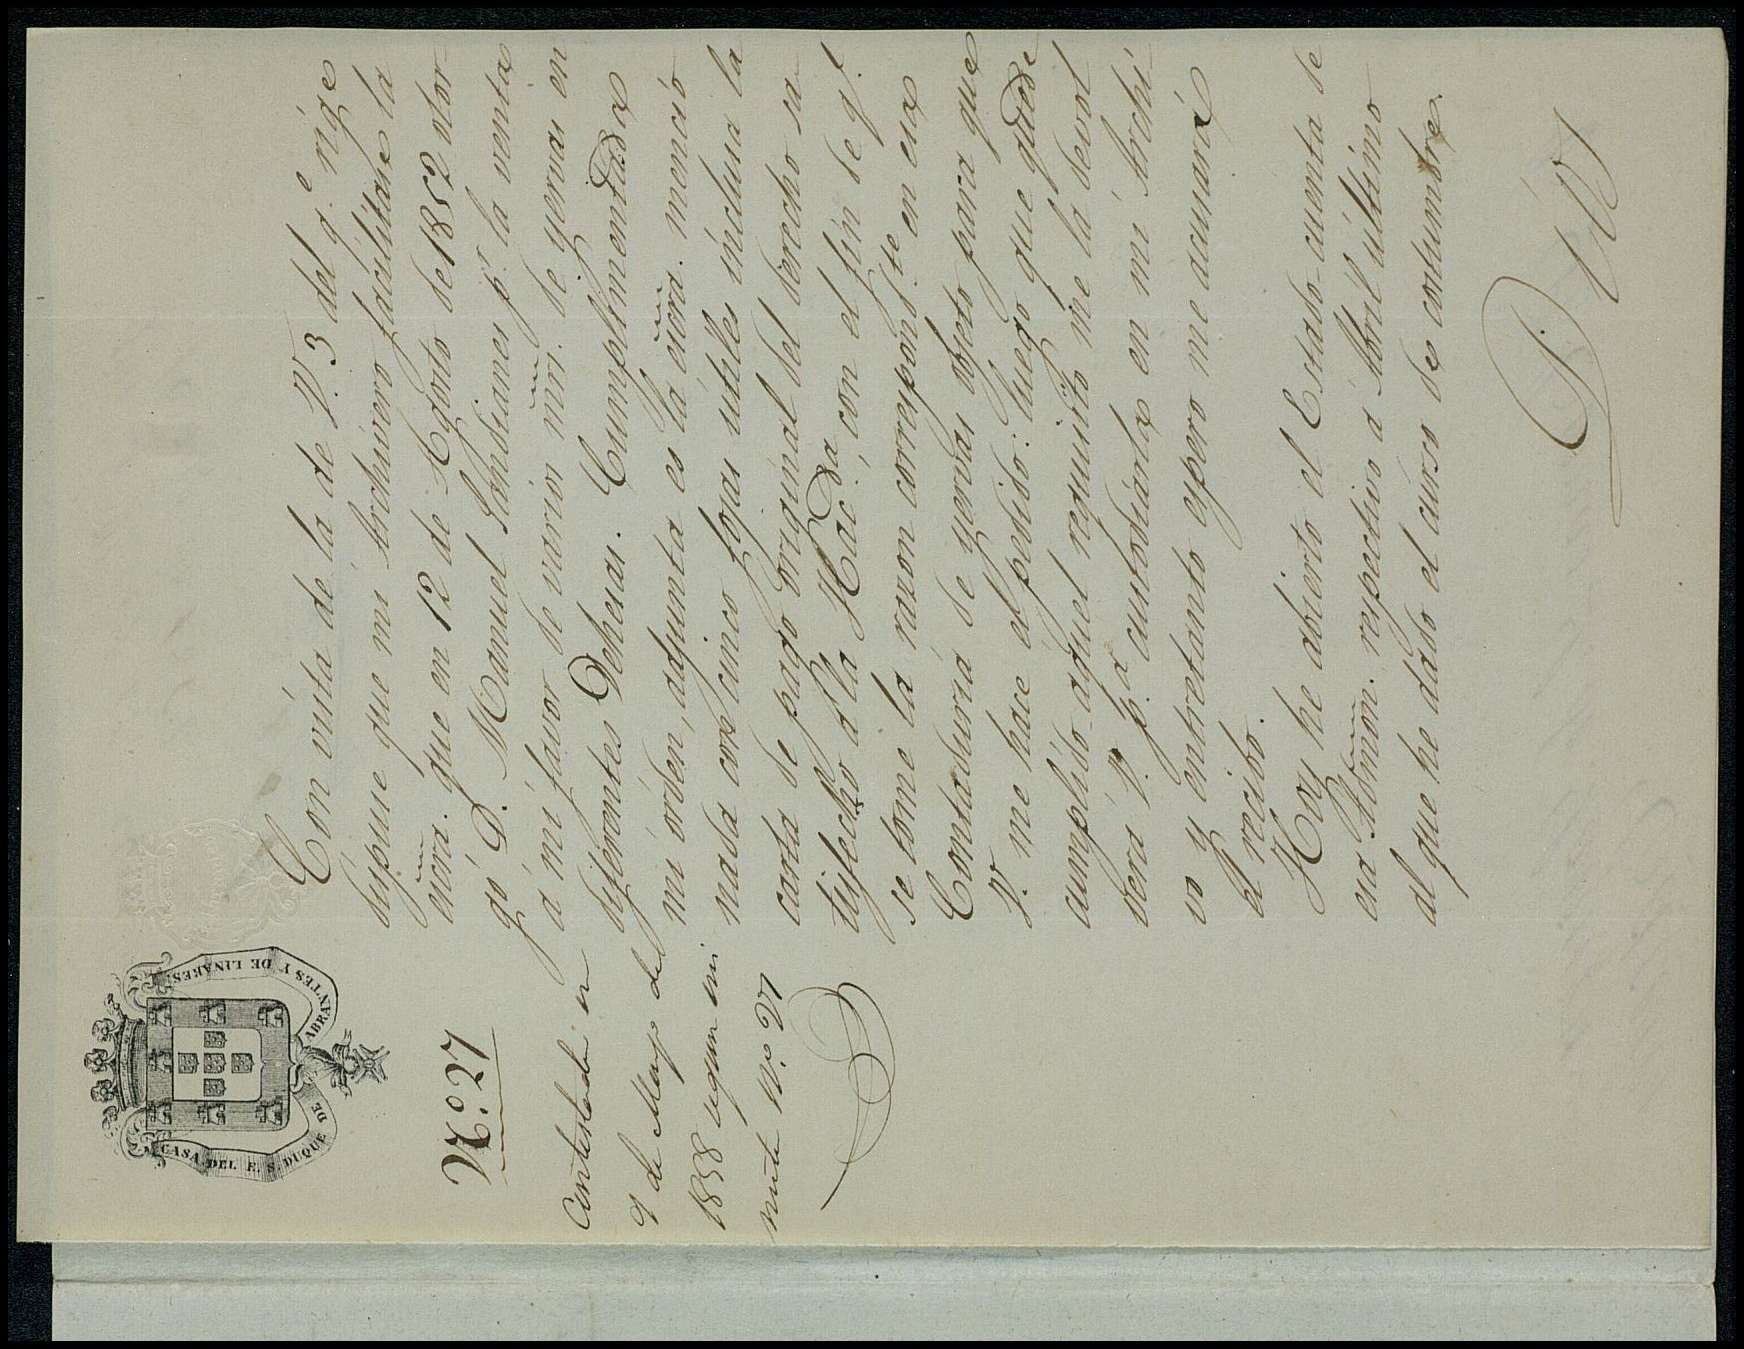 CASA DEL E. S. DUQUE DE ABRANTES Y DE LINARES.
N.º 27
Contestada en
9 de Mayo del
1858 segun mi
nuta N.º 27
Con vista de la de V. 3 del q.e rige
dispuse que mi Archivero facilitase la
escra. que en 12 de Agosto de 1852 otor
gó D. Manuel Sandianes p.r la venta
á mi favor de varios mrs. de yervas en
diferentes Dehesas. Cumplimentada
mi órden, adjunta es la escra. mencio
nada con cinco fojas utiles inclusa la
carta de pago original del derecho sa
tisfecho á la Hac.da con el fin de q.e
se tome la razon correspond.te en esa
Contaduria de yervas objeto para que
V. me hace el pedido: luego que quede
cumplido aquel requisito me la devol
verá V. p.a custodiarla en mi Archi
vo y entretanto espero me acusará
el recibo.
Hoy he abierto el Estado-cuenta de
esa Admon. respectivo á Abril último
al que he dado el curso de costumbre.